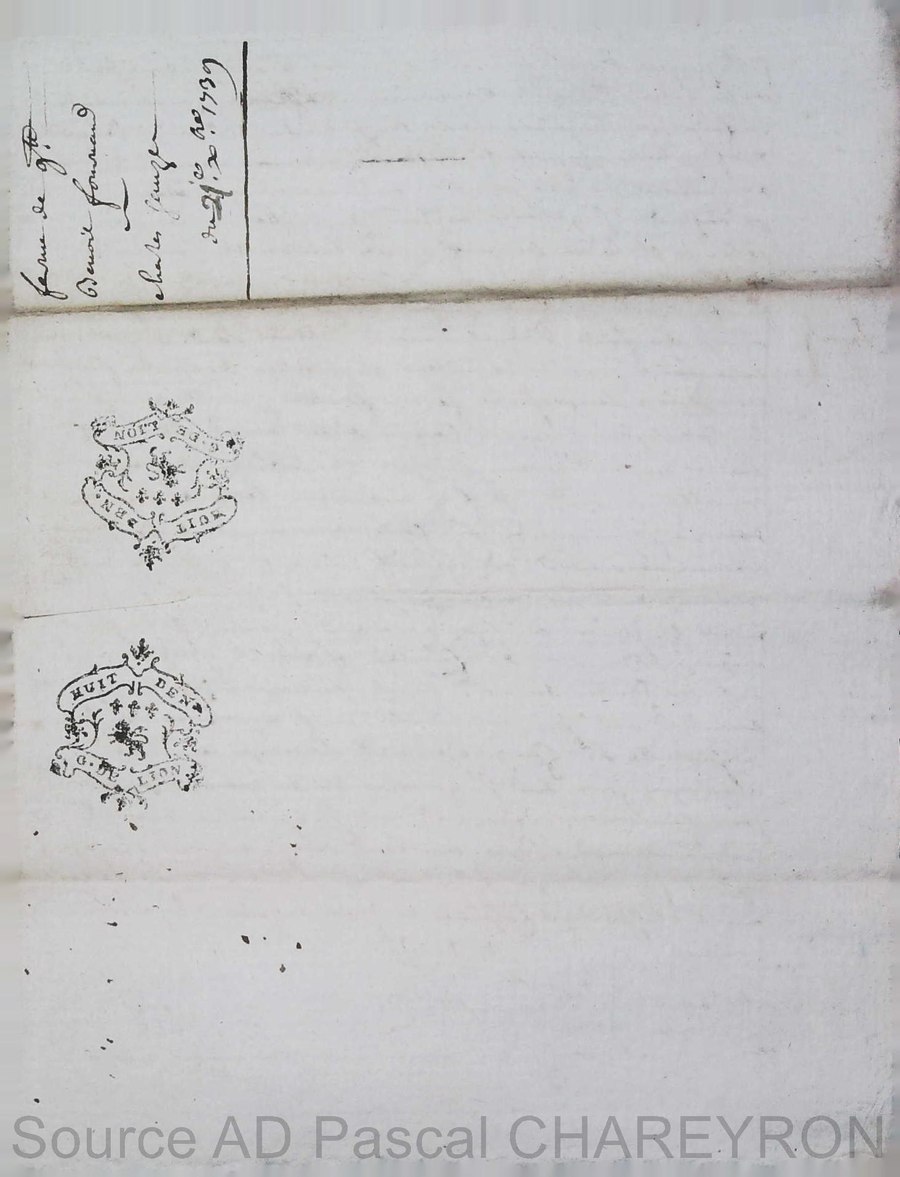 ferme de 9.
Benoit fournand
charles
du 21.e xbre 1739
HUIT DEN.
G. DE LION
HUIT DEN.
G. DE LION
Source AD Pascal CHAREYRON